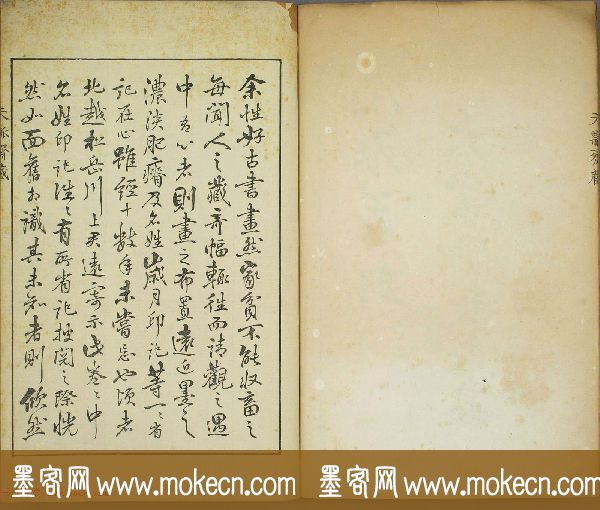 余性好古書畫然家貧不能收畜之
每聞人之藏奇幅輒往而請觀之遇
中意者則畫之布置遠近墨之
濃淡肥瘠及名姓歲月印記等一一省
記在心雖經十數年未嘗忘也頃者
北越松岳川上君遠寄示此卷卷中
名姓印記往往有所省記披閱之際恍
然如面舊相識其未知者則倏然
墨客网 www.mokecn.com
墨客网 www.mokecn.com